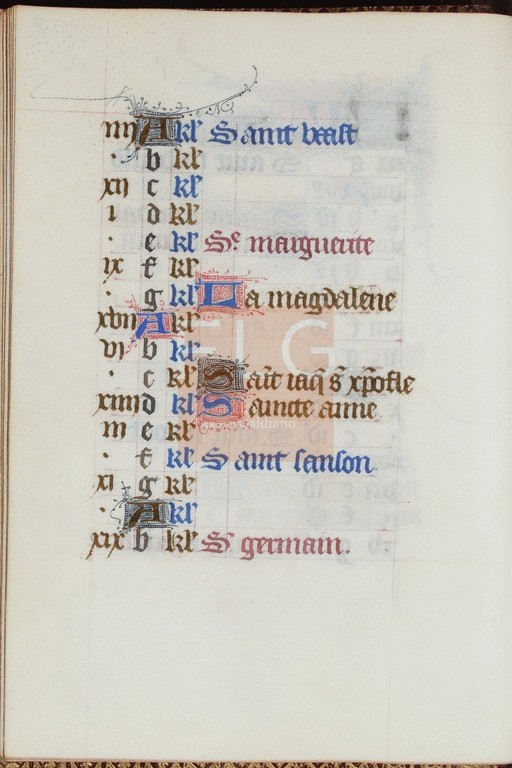 iiii A kl' Saint veast
. b kl'
xii c kl'
i d kl'
. e kl' Se marguerite
ix f kl'
. g kl' La magdalene
xvii A kl'
vi b kl'
. c kl' Sait iaq s xpofle
xiiii d kl' Saincte anne
iii e kl'
. f kl' Saint sanson
xi g kl'
. A kl'
xix b kl' St germain.
FLG